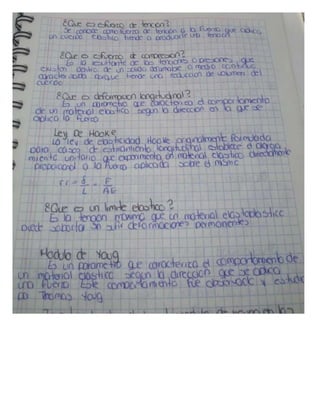 ¿Que es esfuerzo de tension?
Se conoce como fuerza de tension a la fuerza que aplica
un cuerpo elastico tiende a producirle una tension
¿Que es esfuerzo de compresion?
Es la resultante de las tensiones o presiones que
existen dentro de un solido deformable o medio continuo,
caracterizada porque tiende una reduccion de volumen del
cuerpo
¿Que es deformacion longitudinal?
Es un parametro que caracteriza el comportamiento
de un material elastico segun la direccion en la que se
aplica la fuerza
Ley De Hooke
La ley de elasticidad Hooke originalmente formulada
para casos de estiramiento longitudinal establece el alarga
miento unitario que experimenta un material elastico directamente
proporcional a la fuerza aplicada sobre el mismo
¿Que es un limite elastico?
Es la tension maxima que un material elastoplastico
puede soportar sin sufrir deformaciones permanentes
Modulo de Youg
Es un parametro que caracteriza el comportamiento de
un material elastico segun la direccion que se aplica
una fuerza Este comportamiento fue observado y estudia
por Thomas Youg